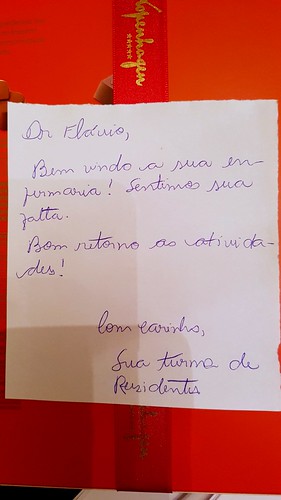 Kopenhagen
Dr Flávio,
Bem vindo a sua en-
fermaria! Sentimos sua
falta.
Bom retorno as ativida-
des!
Com carinho,
Sua turma de
Residentes